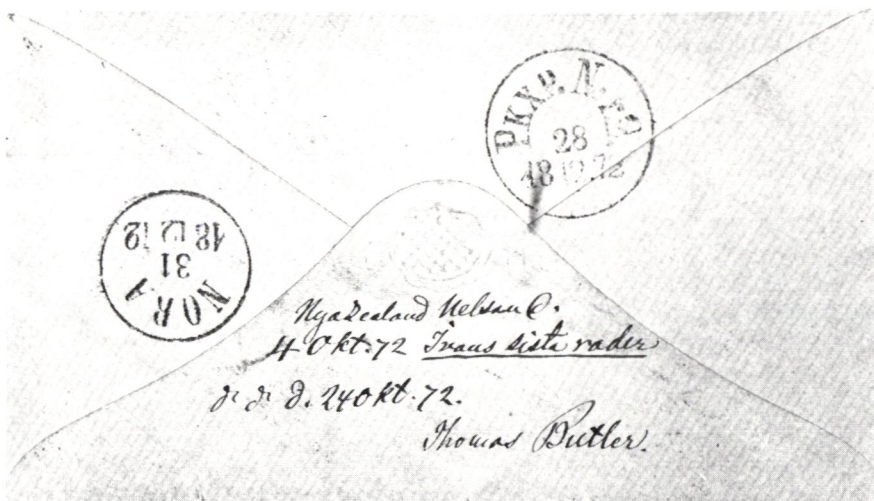 PKXP. N. 2
28
18 12 72
NORA
31
18 12 72
Nya Zealand Nelson C.
4 Okt. 72 Ivans sista rader
d. 24 Okt. 72.
Thomas Butler.